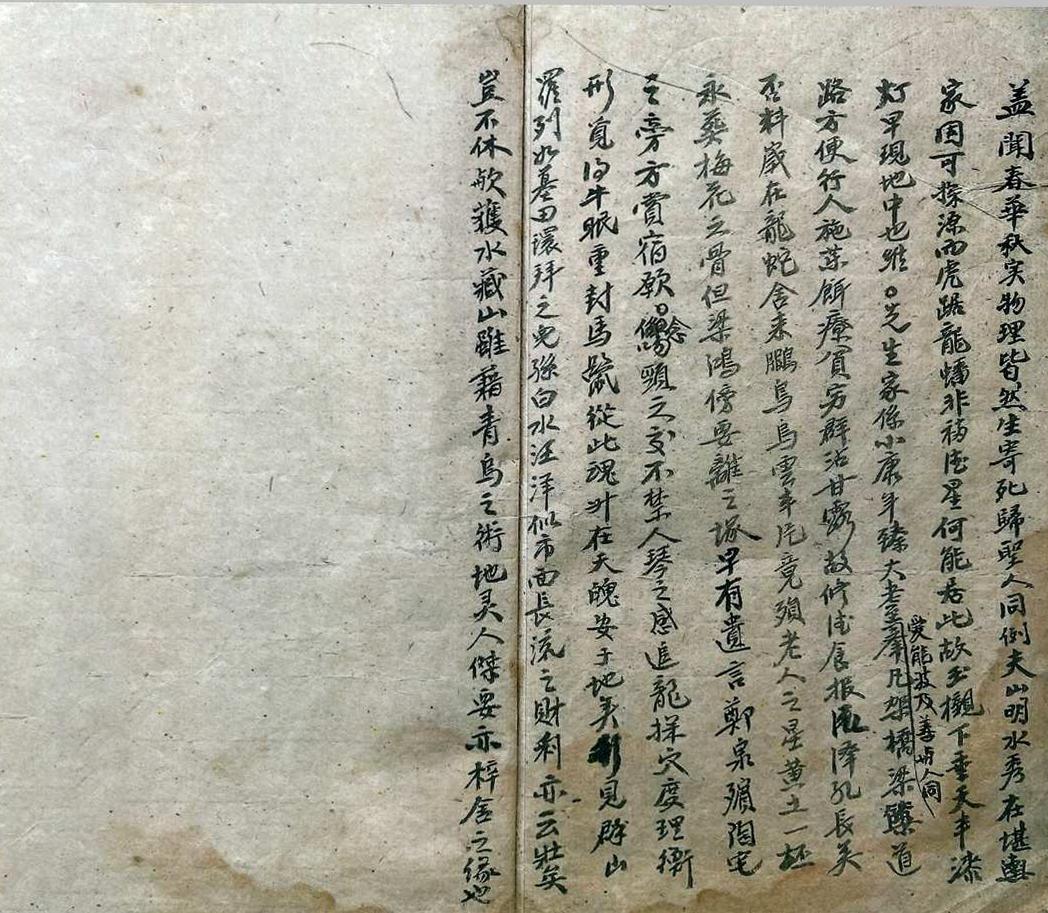 盖闻春華秋实物理皆然生寄死歸聖人同倒夫山明水秀在堪輿
家因可探源而虎踞龍蟠非福徳星何能居此故玉櫬下垂天丰漆
灯早現地中也維〇先生家係小康年臻大耋凡架橋梁道
愛能波及善与人同
路方便行人施茶餌療負穷群沾甘露故修徳食报凮澤孔長矣
否料歲在龍蛇舍来鵬鳥烏雲半片竟殞老人之星黄土一坯
永葬梅花之骨但梁鴻傍要離之塚早有遺言鄭泉殯陶宅
之旁方賞宿願〇念頸之交不禁人琴之感追龍探穴度理衡
形覓得牛眠重封馬鬛從此魂升在天魄安于地矣見群山
羅列如墓田環拜之兒孫白水汪洋似市面長流之財利亦云壯矣
豈不休歟䕶水藏山雖藉青烏之術地灵人傑要亦梓舍之缘也